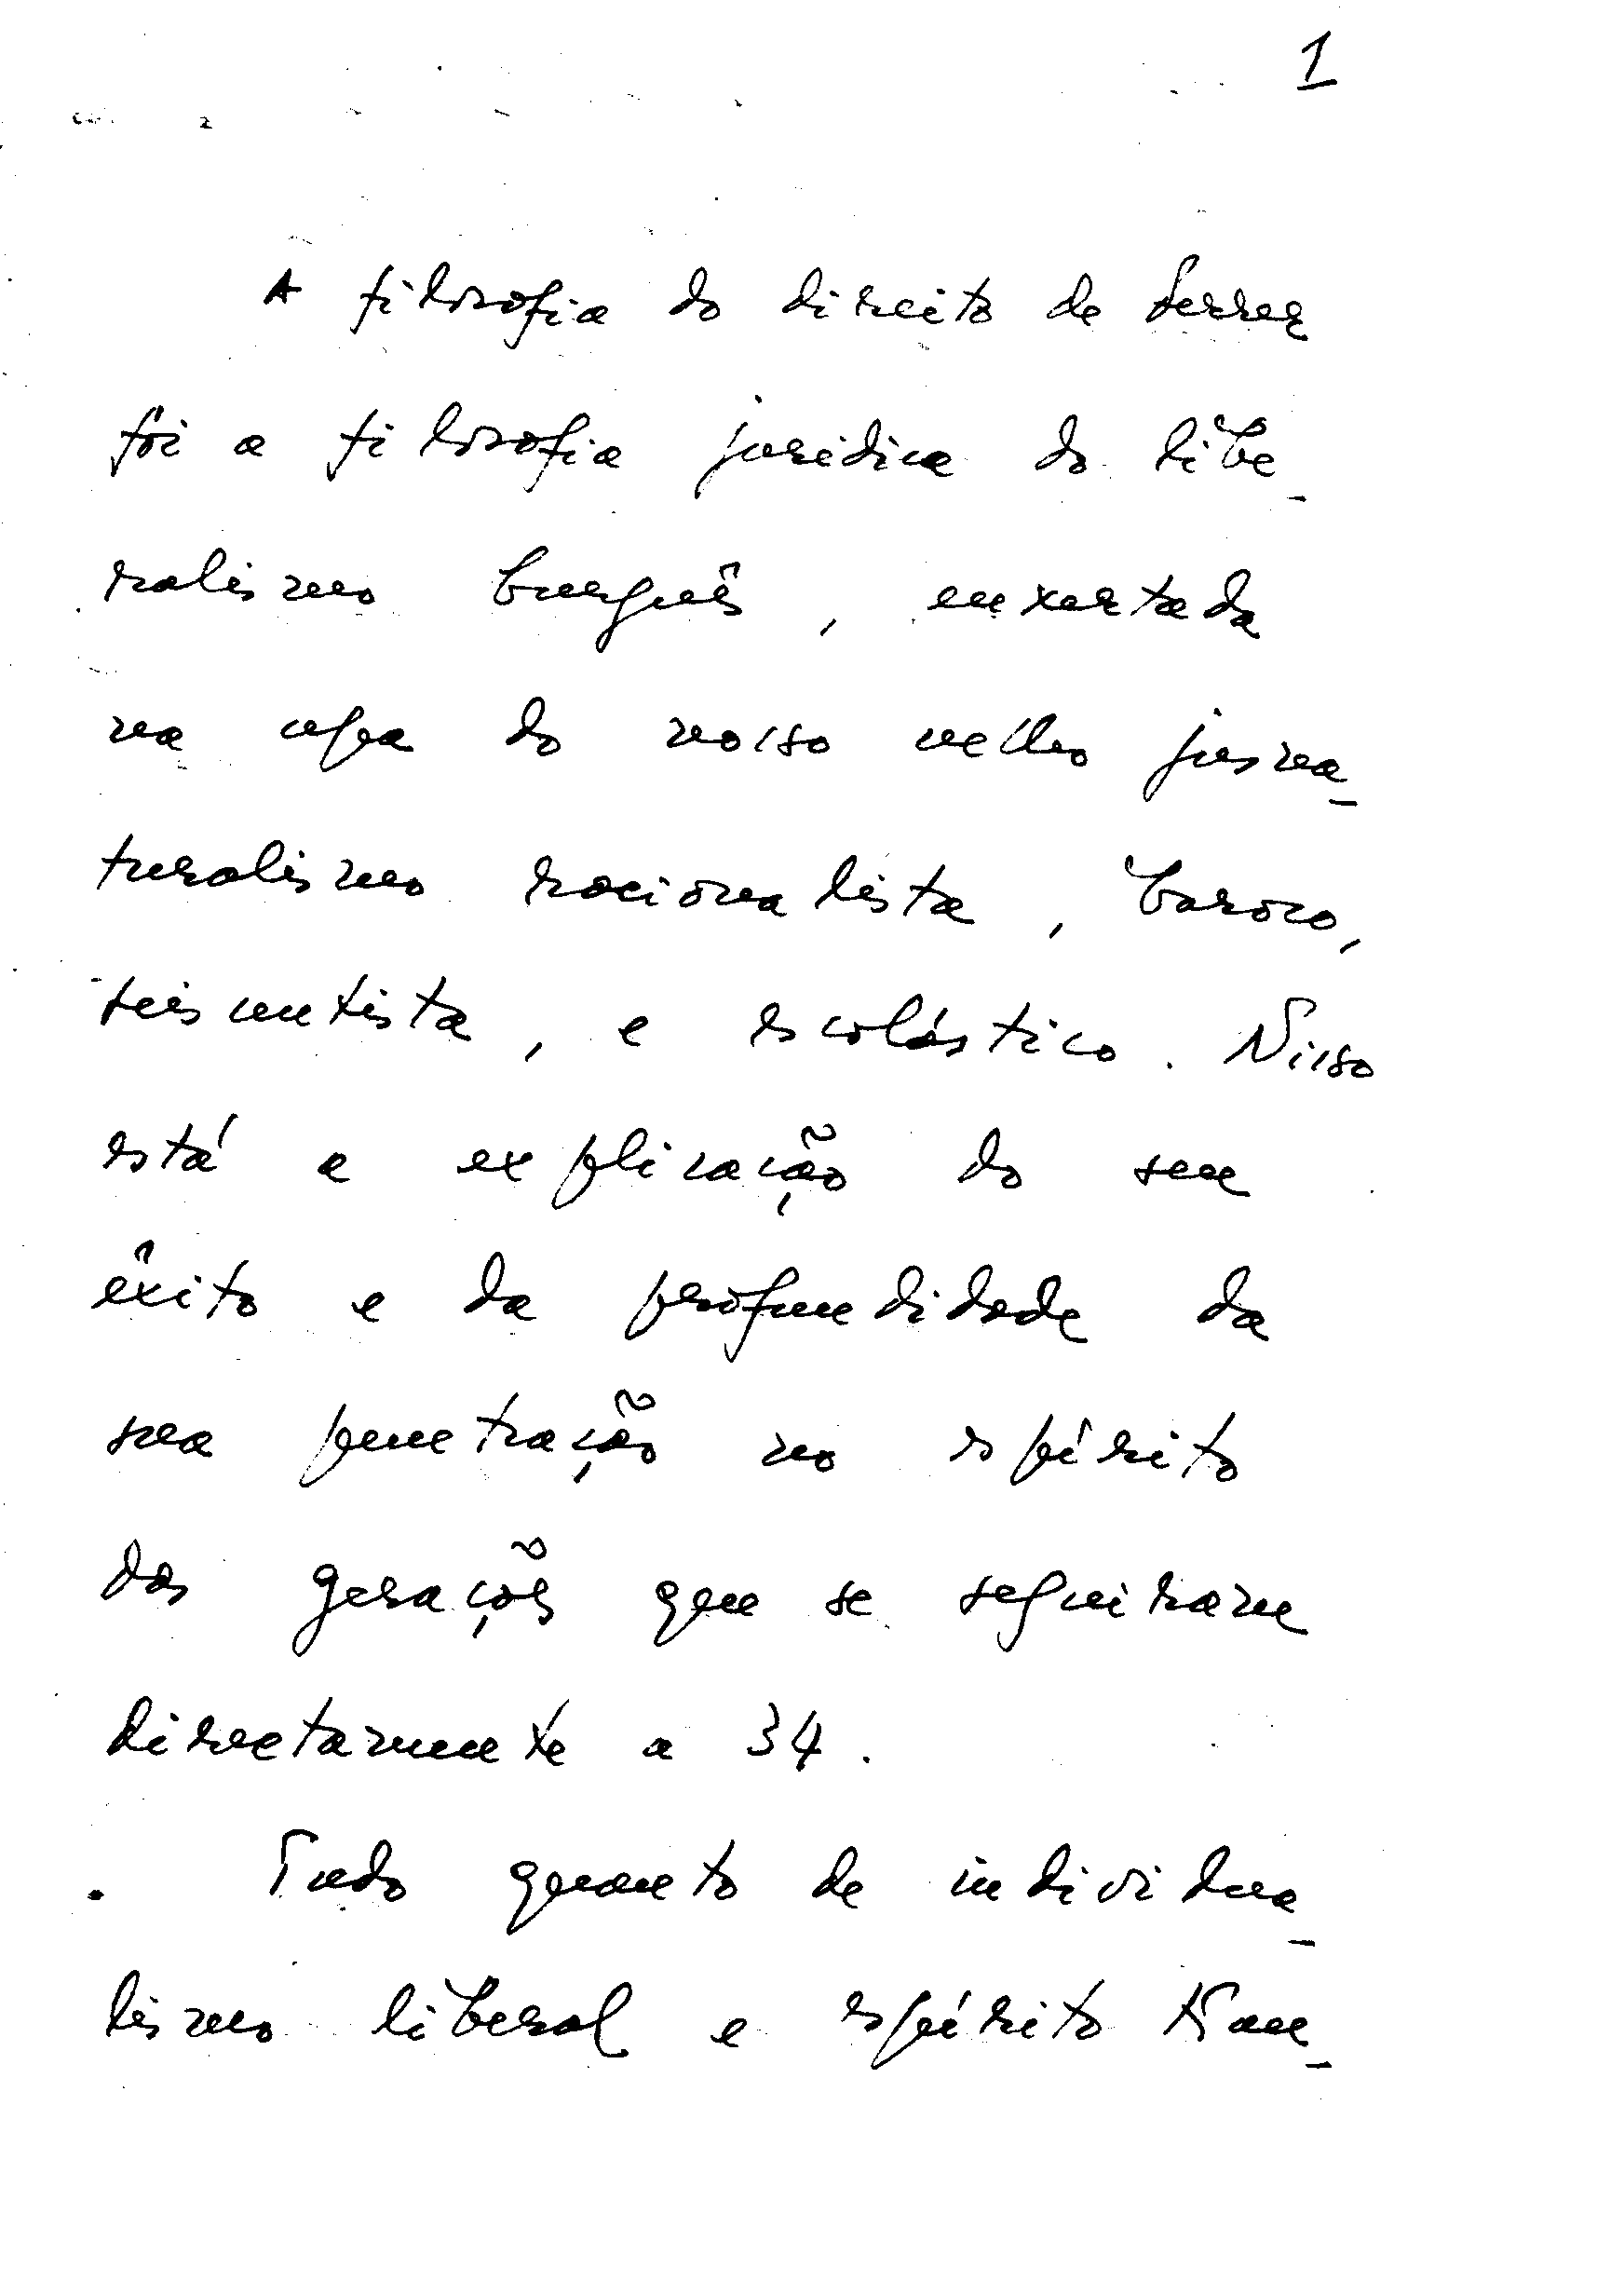 1
A filosofia do direito de Ferrer
foi a filosofia jurídica do libe-
ralismo burguês, enxertada
na cepa do nosso velho jusna-
turalismo racionalista, baroco,
seiscentista, e escolástico. Nisso
está a explicação do seu
êxito e da profundidade da
sua penetração no espírito
das gerações que se seguiram
directamente a 34.
Tudo quanto de individua-
lismo liberal e espírito Kan-